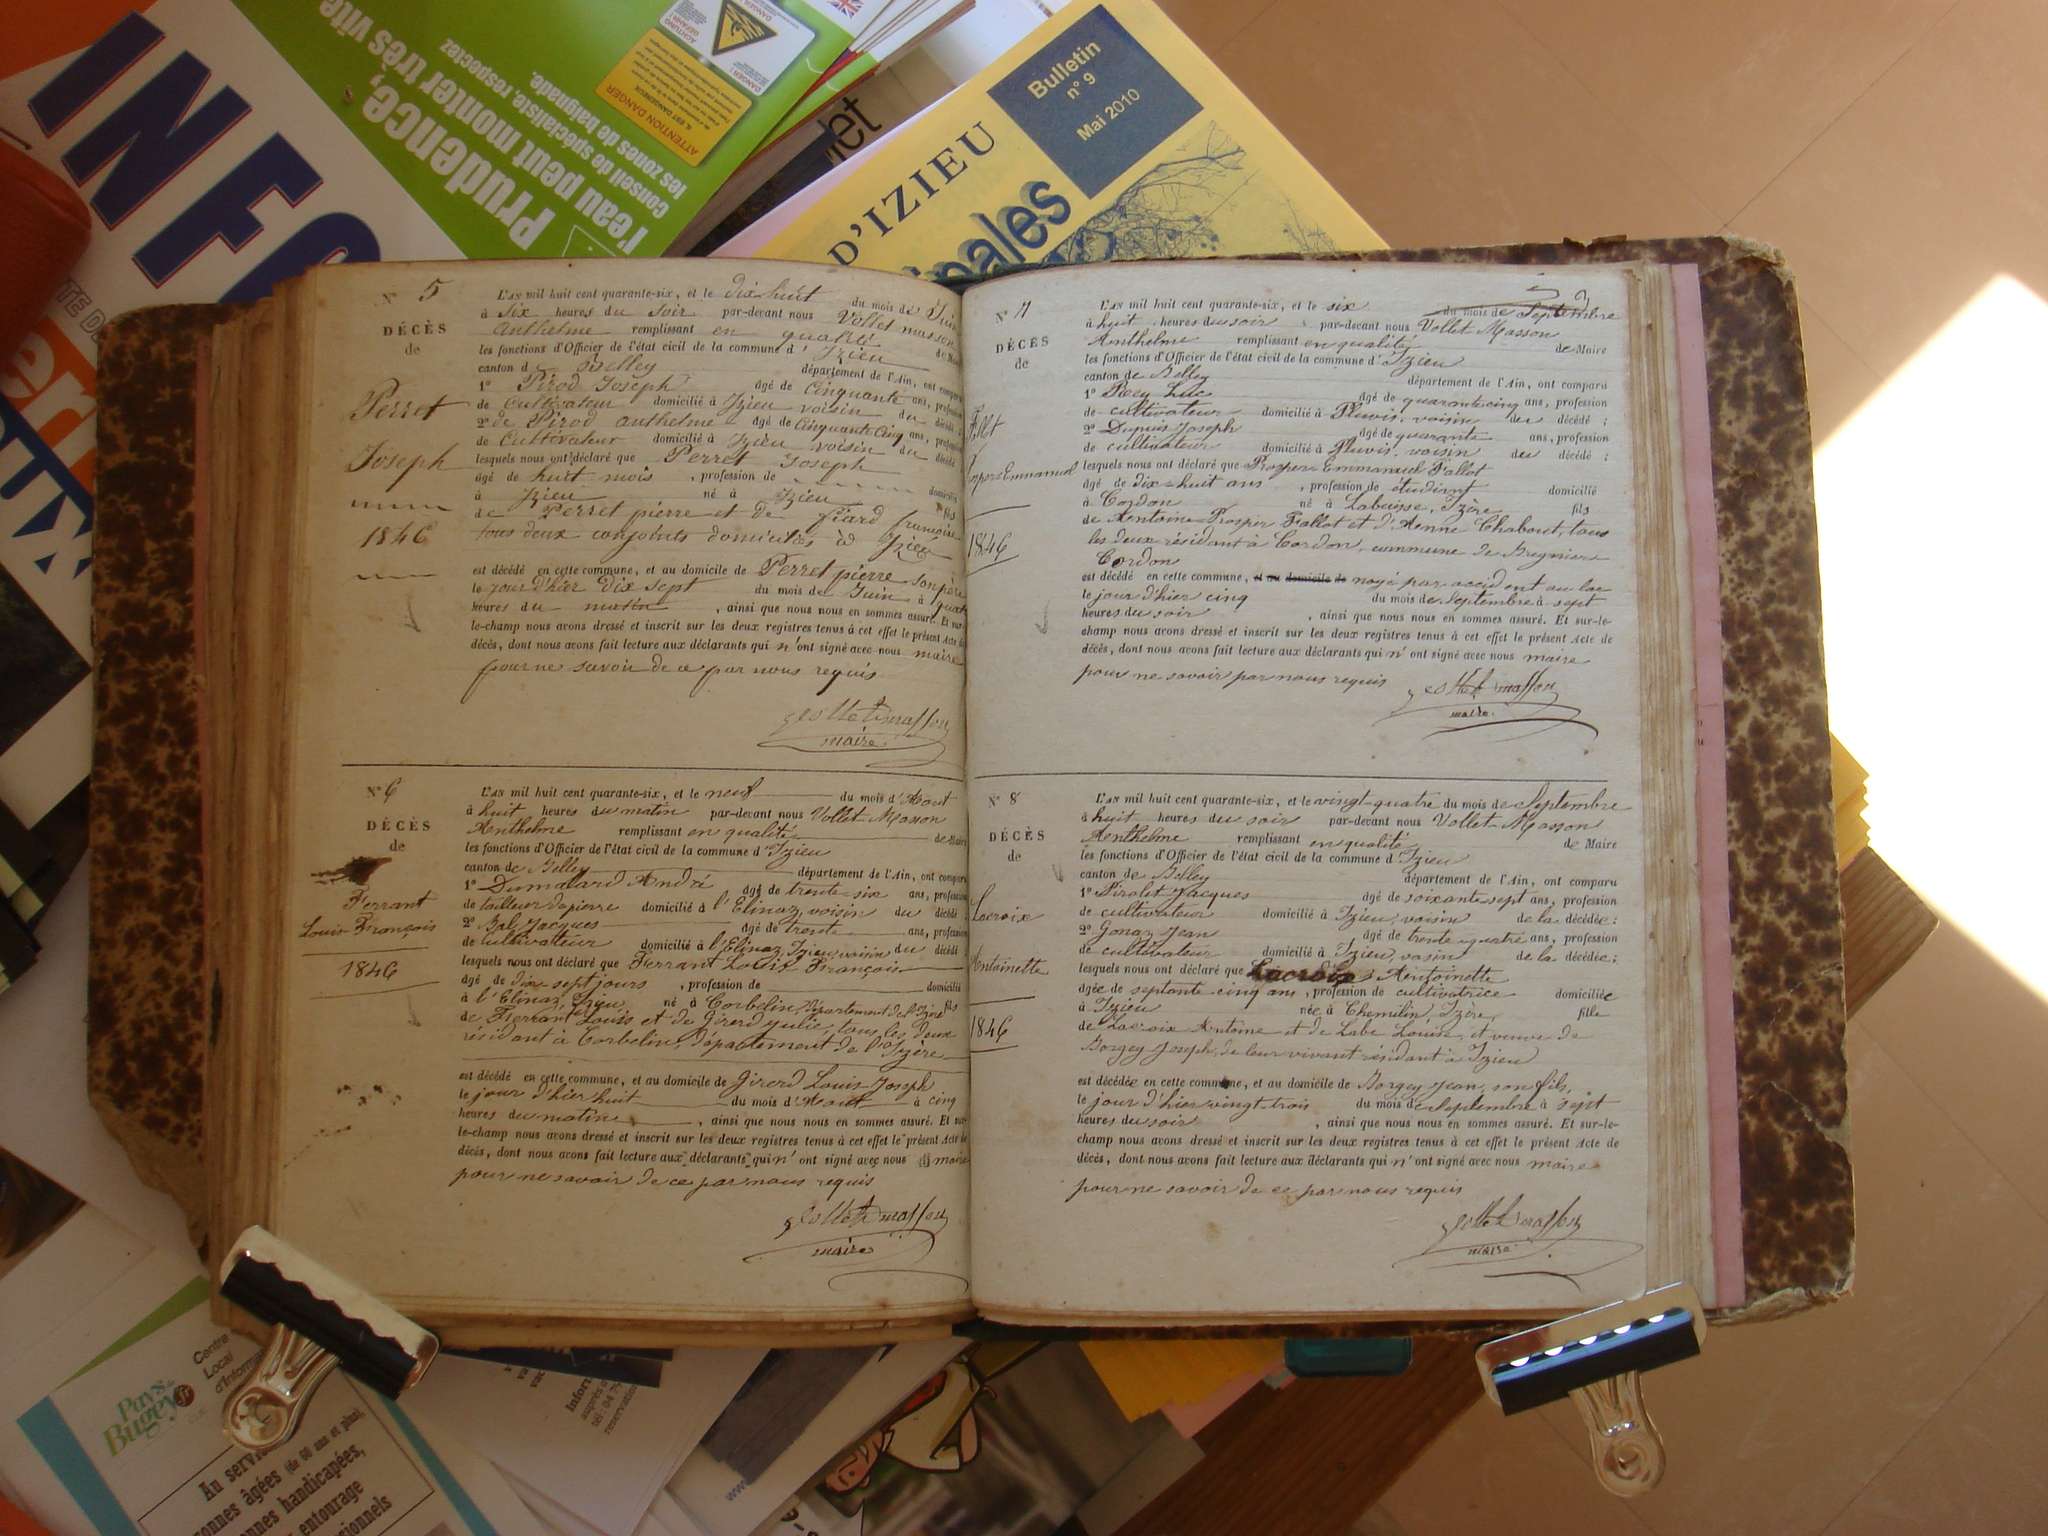 INFO
Prudence,
l'eau peut monter très vite
conseil de spécialiste, respectez
les zones de baignade.
ATTENTION DANGER
D'IZIEU
Bulletin
n° 9
Mai 2010
N° 5
DÉCÈS
de
Perret
Joseph
1846
L'AN mil huit cent quarante-six, et le dix huit du mois de Juin
à six heures du soir par-devant nous Vollet masson
anthelme remplissant en qualité de Maire
les fonctions d'Officier de l'état civil de la commune d'Izieu
canton d Belley département de l'Ain, ont comparu
1° Pirod Joseph âgé de Cinquante ans, profession
de Cultivateur domicilié à Izieu voisin du décédé
2° de Pirod anthelme âgé de Cinquante Cinq ans, profession
de Cultivateur domicilié à Izieu voisin du décédé
lesquels nous ont déclaré que Perret Joseph
âgé de huit mois, profession de domicilié
à Izieu né à Izieu fils
de Perret pierre et de fiard françoise
tous deux conjoints domiciliés à Izieu
est décédé en cette commune, et au domicile de Perret pierre son père
le jour d'hier dix sept du mois de Juin à quatre
heures du matin, ainsi que nous nous en sommes assuré. Et sur-
le-champ nous avons dressé et inscrit sur les deux registres tenus à cet effet le présent Acte de
décès, dont nous avons fait lecture aux déclarants qui n'ont signé avec nous maire
pour ne savoir de ce par nous requis
Vollet masson
maire
N° 6
DÉCÈS
de
Ferrant
Louis François
1846
L'AN mil huit cent quarante-six, et le neuf du mois d'Aout
à huit heures du matin par-devant nous Vollet Masson
Anthelme remplissant en qualité de Maire
les fonctions d'Officier de l'état civil de la commune d'Izieu
canton de Belley département de l'Ain, ont comparu
1° Dumalard André âgé de trente-six ans, profession
de tailleur de pierre domicilié à l'Elinaz, voisin du décédé
2° Bal Jacques âgé de trente ans, profession
de cultivateur domicilié à l'Elinaz, Izieu, voisin du décédé
lesquels nous ont déclaré que Ferrant Louis François
âgé de dix-sept jours, profession de domicilié
à l'Elinaz, Izieu, né à Corbelin, Département de l'Izère fils
de Ferrant Louis et de Girerd Julie, tous les deux
résidant à Corbelin, département de l'Izère
est décédé en cette commune, et au domicile de Girerd Louis-Joseph
le jour d'hier huit du mois d'Aout à cinq
heures du matin, ainsi que nous nous en sommes assuré. Et sur-
le-champ nous avons dressé et inscrit sur les deux registres tenus à cet effet le présent Acte de
décès, dont nous avons fait lecture aux déclarants qui n'ont signé avec nous maire
pour ne savoir de ce par nous requis
Vollet masson
maire
N° 7
DÉCÈS
de
Fallot
Prosper Emmanuel
1846
L'AN mil huit cent quarante-six, et le six du mois de Septembre
à huit heures du soir par-devant nous Vollet Masson
Anthelme remplissant en qualité de Maire
les fonctions d'Officier de l'état civil de la commune d'Izieu
canton de Belley département de l'Ain, ont comparu
1° Rey Luc âgé de quarante cinq ans, profession
de cultivateur domicilié à Pluvis, voisin du décédé ;
2° Dupuis Joseph âgé de quarante ans, profession
de cultivateur domicilié à Pluvis, voisin du décédé ;
lesquels nous ont déclaré que Prosper Emmanuel Fallot
âgé de dix-huit ans, profession de étudiant domicilié
à Cordon né à Labuisse, Izère fils
de Antoine Prosper Fallot et d'Anne Chabout, tous
les deux résidant à Cordon, commune de Bregnier
Cordon
est décédé en cette commune, et au domicile de noyé par accident au lac
le jour d'hier cinq du mois de Septembre à sept
heures du soir, ainsi que nous nous en sommes assuré. Et sur-le-
champ nous avons dressé et inscrit sur les deux registres tenus à cet effet le présent Acte de
décès, dont nous avons fait lecture aux déclarants qui n'ont signé avec nous maire
pour ne savoir par nous requis
Vollet masson
maire.
N° 8
DÉCÈS
de
Lacroix
Antoinette
1846
L'AN mil huit cent quarante-six, et le vingt-quatre du mois de Septembre
à huit heures du soir par-devant nous Vollet-Masson
Anthelme remplissant en qualité de Maire
les fonctions d'Officier de l'état civil de la commune d'Izieu
canton de Belley département de l'Ain, ont comparu
1° Pirolet Jacques âgé de soixante sept ans, profession
de cultivateur domicilié à Izieu, voisin de la décédée ;
2° Gonaz Jean âgé de trente quatre ans, profession
de cultivateur domicilié à Izieu, voisin de la décédée ;
lesquels nous ont déclaré que Lacroix Antoinette
âgée de septante cinq ans, profession de cultivatrice domiciliée
à Izieu née à Chemilin, Izère, fille
de Lacroix Antoine et de Labe Louise, et veuve de
Borgey Joseph, de leur vivant résidant à Izieu
est décédée en cette commune, et au domicile de Borgey Jean, son fils,
le jour d'hier vingt-trois du mois de Septembre à sept
heures du soir, ainsi que nous nous en sommes assuré. Et sur-le-
champ nous avons dressé et inscrit sur les deux registres tenus à cet effet le présent Acte de
décès, dont nous avons fait lecture aux déclarants qui n'ont signé avec nous maire
pour ne savoir de ce par nous requis
Vollet masson
maire
Pays du
Bugey
Centre
Local
d'Informa
Au servi
sonnes âgées (de 60 ans et plus),
onnes handicapées,
entourage
sionnels